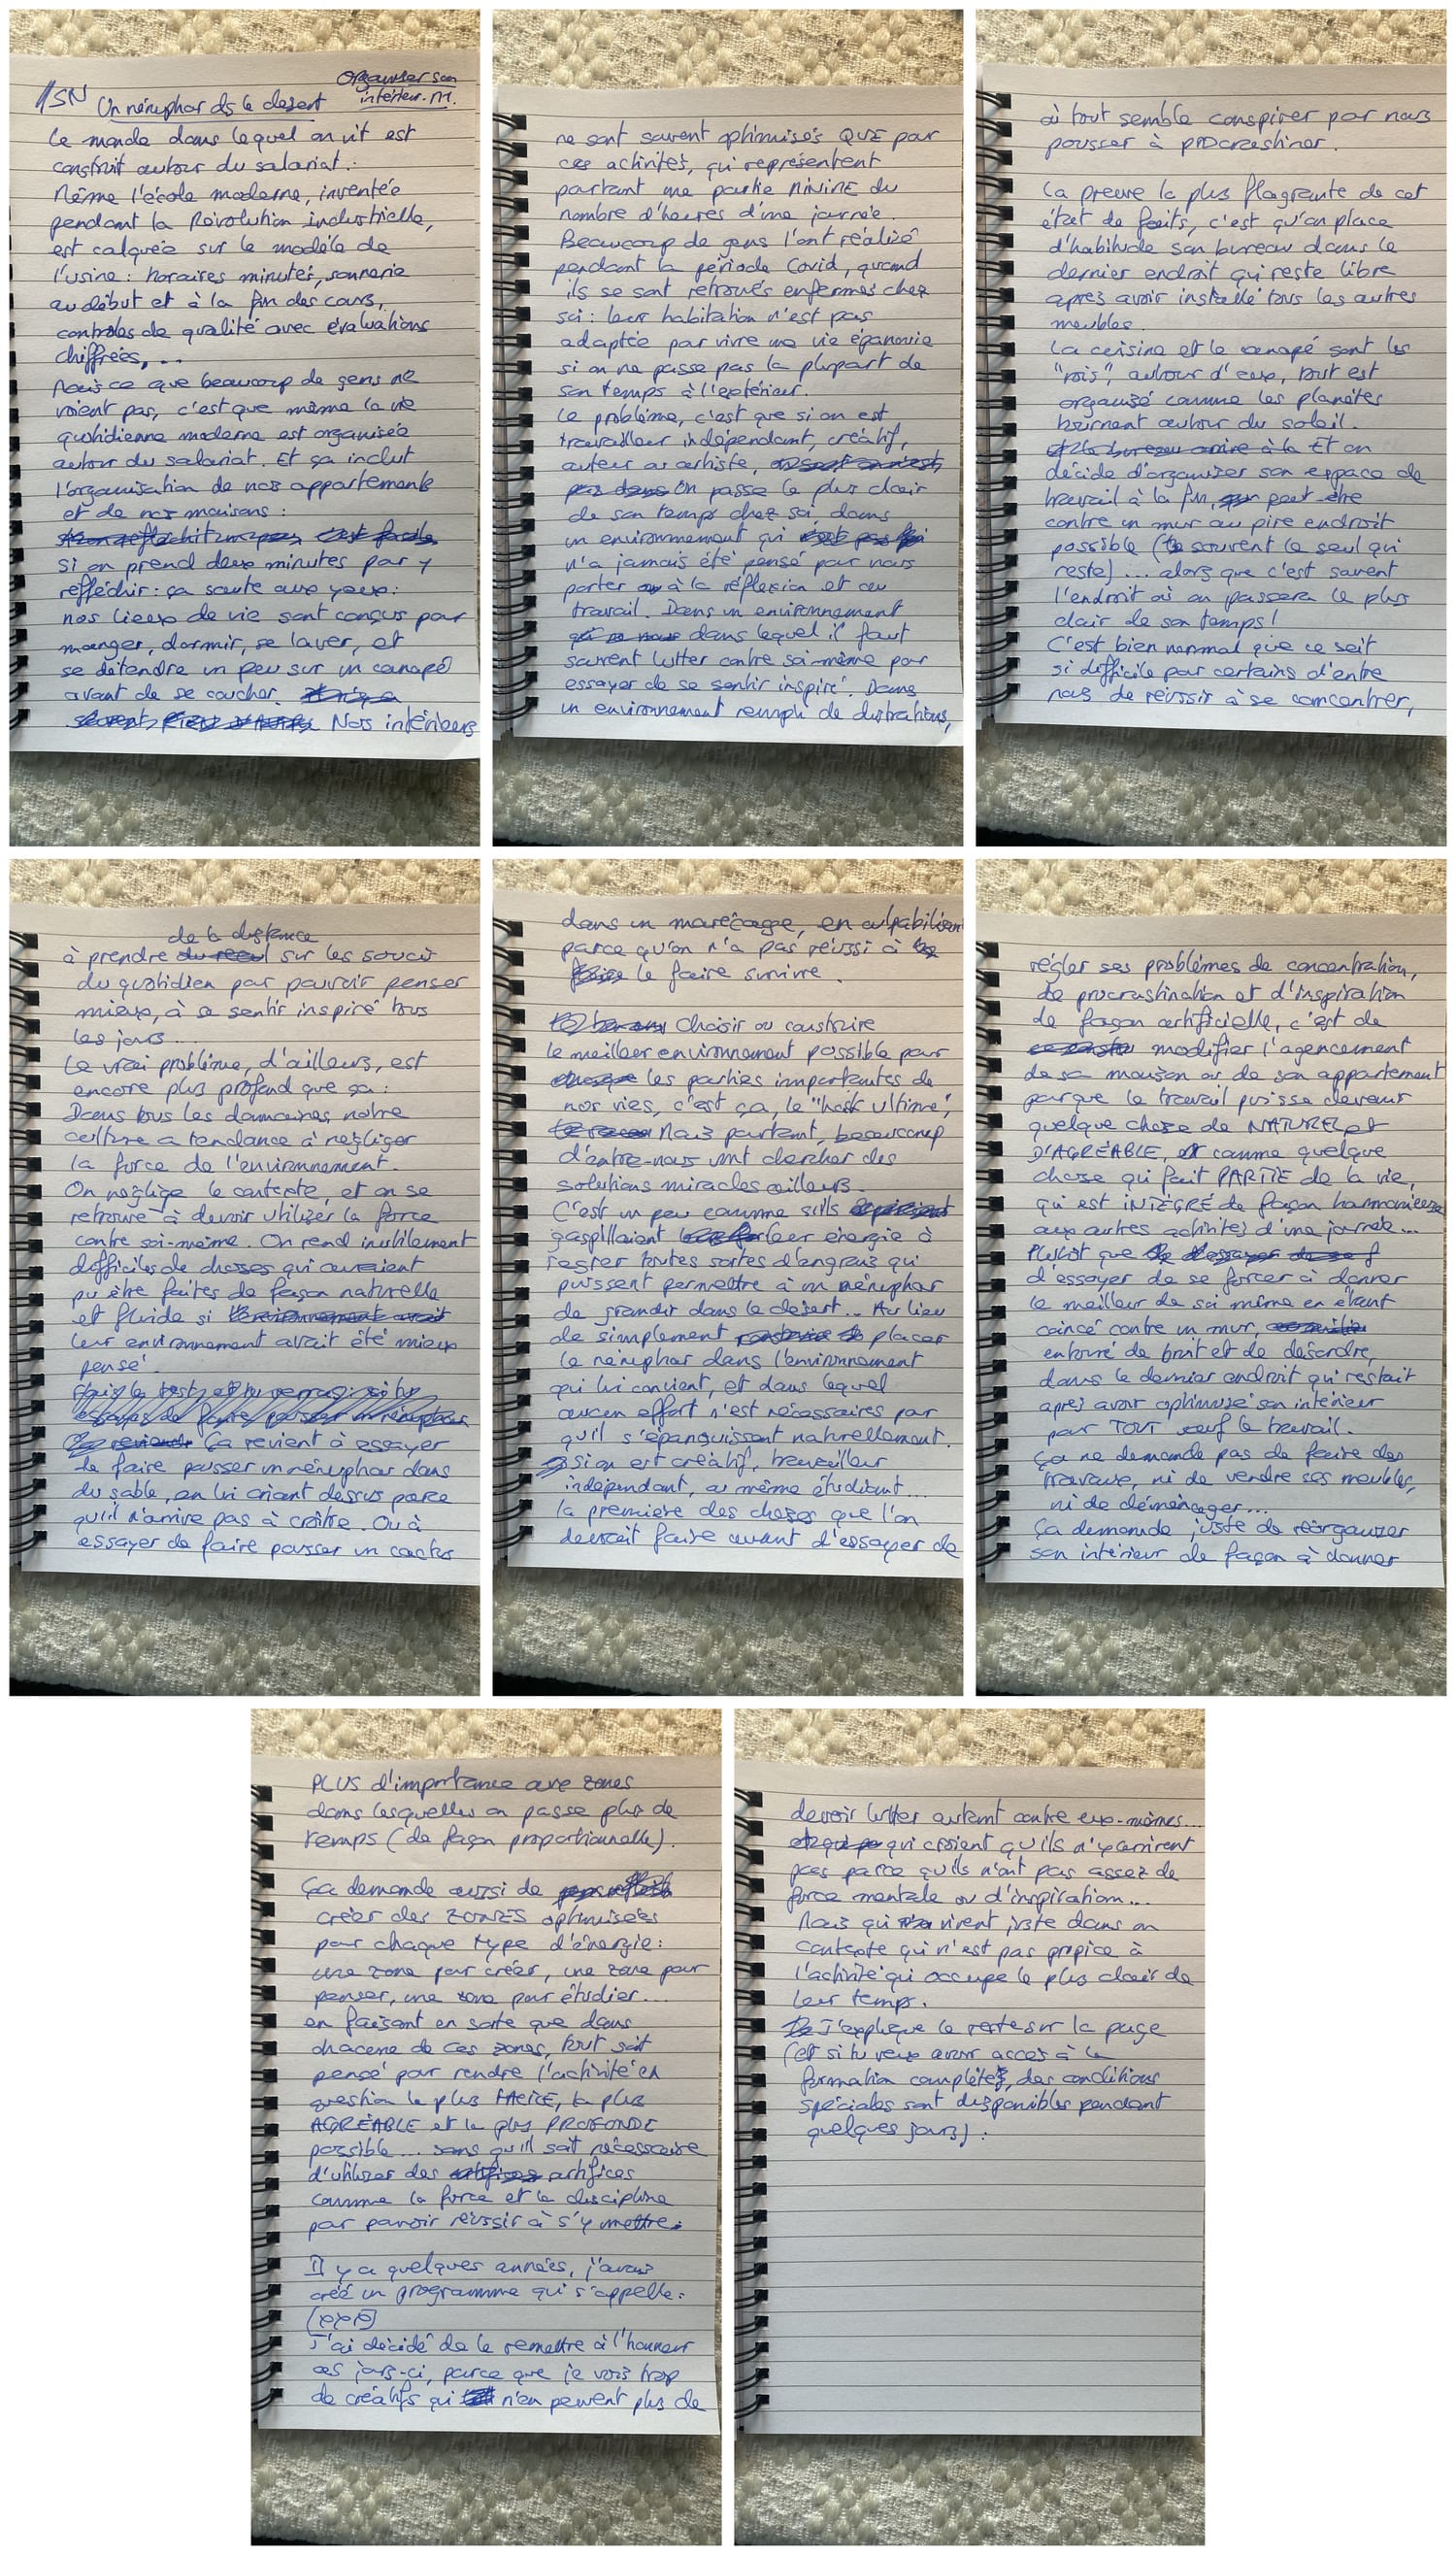 //SN Un nénuphar ds le désert
Organiser son
intérieur. M.
Le monde dans lequel on vit est
construit autour du salariat.
Même l'école moderne, inventée
pendant la Révolution industrielle,
est calquée sur le modèle de
l'usine : horaires minutés, sonnerie
au début et à la fin des cours,
contrôles de qualité avec évaluations
chiffrées, ...
Mais ce que beaucoup de gens ne
voient pas, c'est que même la vie
quotidienne moderne est organisée
autour du salariat. Et ça inclut
l'organisation de nos appartements
et de nos maisons :
si on prend deux minutes par y
réfléchir : ça saute aux yeux :
nos lieux de vie sont conçus pour
manger, dormir, se laver, et
se détendre un peu sur un canapé
avant de se coucher.
Nos intérieurs
ne sont souvent optimisés QUE pour
ces activités, qui représentent
pourtant une partie MINIME du
nombre d'heures d'une journée.
Beaucoup de gens l'ont réalisé
pendant la période Covid, quand
ils se sont retrouvés enfermés chez
soi : leur habitation n'est pas
adaptée pour vivre une vie épanouie
si on ne passe pas la plupart de
son temps à l'extérieur.
Le problème, c'est que si on est
travailleur indépendant, créatif,
auteur ou artiste,
on passe le plus clair
de son temps chez soi, dans
un environnement qui
n'a jamais été pensé pour nous
porter à la réflexion et au
travail. Dans un environnement
dans lequel il faut
souvent lutter contre soi-même pour
essayer de se sentir inspiré. Dans
un environnement rempli de distractions,
où tout semble conspirer pour nous
pousser à procrastiner.
La preuve la plus flagrante de cet
état de faits, c'est qu'on place
d'habitude son bureau dans le
dernier endroit qui reste libre
après avoir installé tous les autres
meubles.
La cuisine et le canapé sont les
"rois", autour d'eux, tout est
organisé comme les planètes
tournent autour du soleil.
Et le bureau arrive à la Et on
décide d'organiser son espace de
travail à la fin, peut-être
contre un mur au pire endroit
possible (souvent le seul qui
reste) ... alors que c'est souvent
l'endroit où on passera le plus
clair de son temps !
C'est bien normal que ce soit
si difficile pour certains d'entre
nous de réussir à se concentrer,
de la distance
à prendre du recul sur les soucis
du quotidien pour pouvoir penser
mieux, à se sentir inspiré tous
les jours ...
Le vrai problème, d'ailleurs, est
encore plus profond que ça :
Dans tous les domaines, notre
culture a tendance à négliger
la force de l'environnement.
On néglige le contexte, et on se
retrouve à devoir utiliser la force
contre soi-même. On rend inutilement
difficiles de choses qui auraient
pu être faites de façon naturelle
et fluide si l'environnement avait
leur environnement avait été mieux
pensé.
Ça revient à essayer
de faire pousser un nénuphar dans
du sable, en lui criant dessus parce
qu'il n'arrive pas à croître. Ou à
essayer de faire pousser un cactus
dans un marécage, en culpabilisant
parce qu'on n'a pas réussi à
le faire survivre.
Choisir ou construire
le meilleur environnement possible pour
les parties importantes de
nos vies, c'est ça, le "hack ultime",
Mais pourtant, beaucoup
d'entre-nous vont chercher des
solutions miracles ailleurs.
C'est un peu comme s'ils
gaspillaient leur énergie à
tester toutes sortes d'engrais qui
puissent permettre à un nénuphar
de grandir dans le désert... Au lieu
de simplement placer
le nénuphar dans l'environnement
qui lui convient, et dans lequel
aucun effort n'est nécessaires pour
qu'il s'épanouissent naturellement.
si on est créatif, travailleur
indépendant, ou même étudiant...
la première des choses que l'on
devrait faire avant d'essayer de
régler ses problèmes de concentration,
de procrastination et d'inspiration
de façon artificielle, c'est de
modifier l'agencement
de sa maison ou de son appartement
pour que le travail puisse devenir
quelque chose de NATUREL et
D'AGRÉABLE, comme quelque
chose qui fait PARTIE de la vie,
qui est INTÉGRÉ de façon harmonieuse
aux autres activités d'une journée...
Plutôt que
d'essayer de se forcer à donner
le meilleur de soi même en étant
coincé contre un mur,
entouré de bruit et de désordre,
dans le dernier endroit qui restait
après avoir optimisé son intérieur
pour TOUT sauf le travail.
Ça ne demande pas de faire des
travaux, ni de vendre ses meubles,
ni de déménager...
Ça demande juste de réorganiser
son intérieur de façon à donner
PLUS d'importance aux zones
dans lesquelles on passe plus de
temps (de façon proportionnelle).
Ça demande aussi de
créer des ZONES optimisées
pour chaque type d'énergie :
une zone pour créer, une zone pour
penser, une zone pour étudier...
en faisant en sorte que dans
chacune de ces zones, tout soit
pensé pour rendre l'activité en
question la plus FACILE, la plus
AGRÉABLE et la plus PROFONDE
possible... sans qu'il soit nécessaire
d'utiliser des artifices
comme la force et la discipline
pour pouvoir réussir à s'y mettre.
Il y a quelques années, j'avais
créé un programme qui s'appelle :
J'ai décidé de le remettre à l'honneur
ces jours-ci, parce que je vois trop
de créatifs qui n'en peuvent plus de
devoir lutter autant contre eux-mêmes...
qui croient qu'ils n'y arrivent
pas parce qu'ils n'ont pas assez de
force mentale ou d'inspiration...
Mais qui vivent juste dans un
contexte qui n'est pas propice à
l'activité qui occupe le plus clair de
leur temps.
J'explique le reste sur la page
(et si tu veux avoir accès à la
formation complète, des conditions
spéciales sont disponibles pendant
quelques jours) :